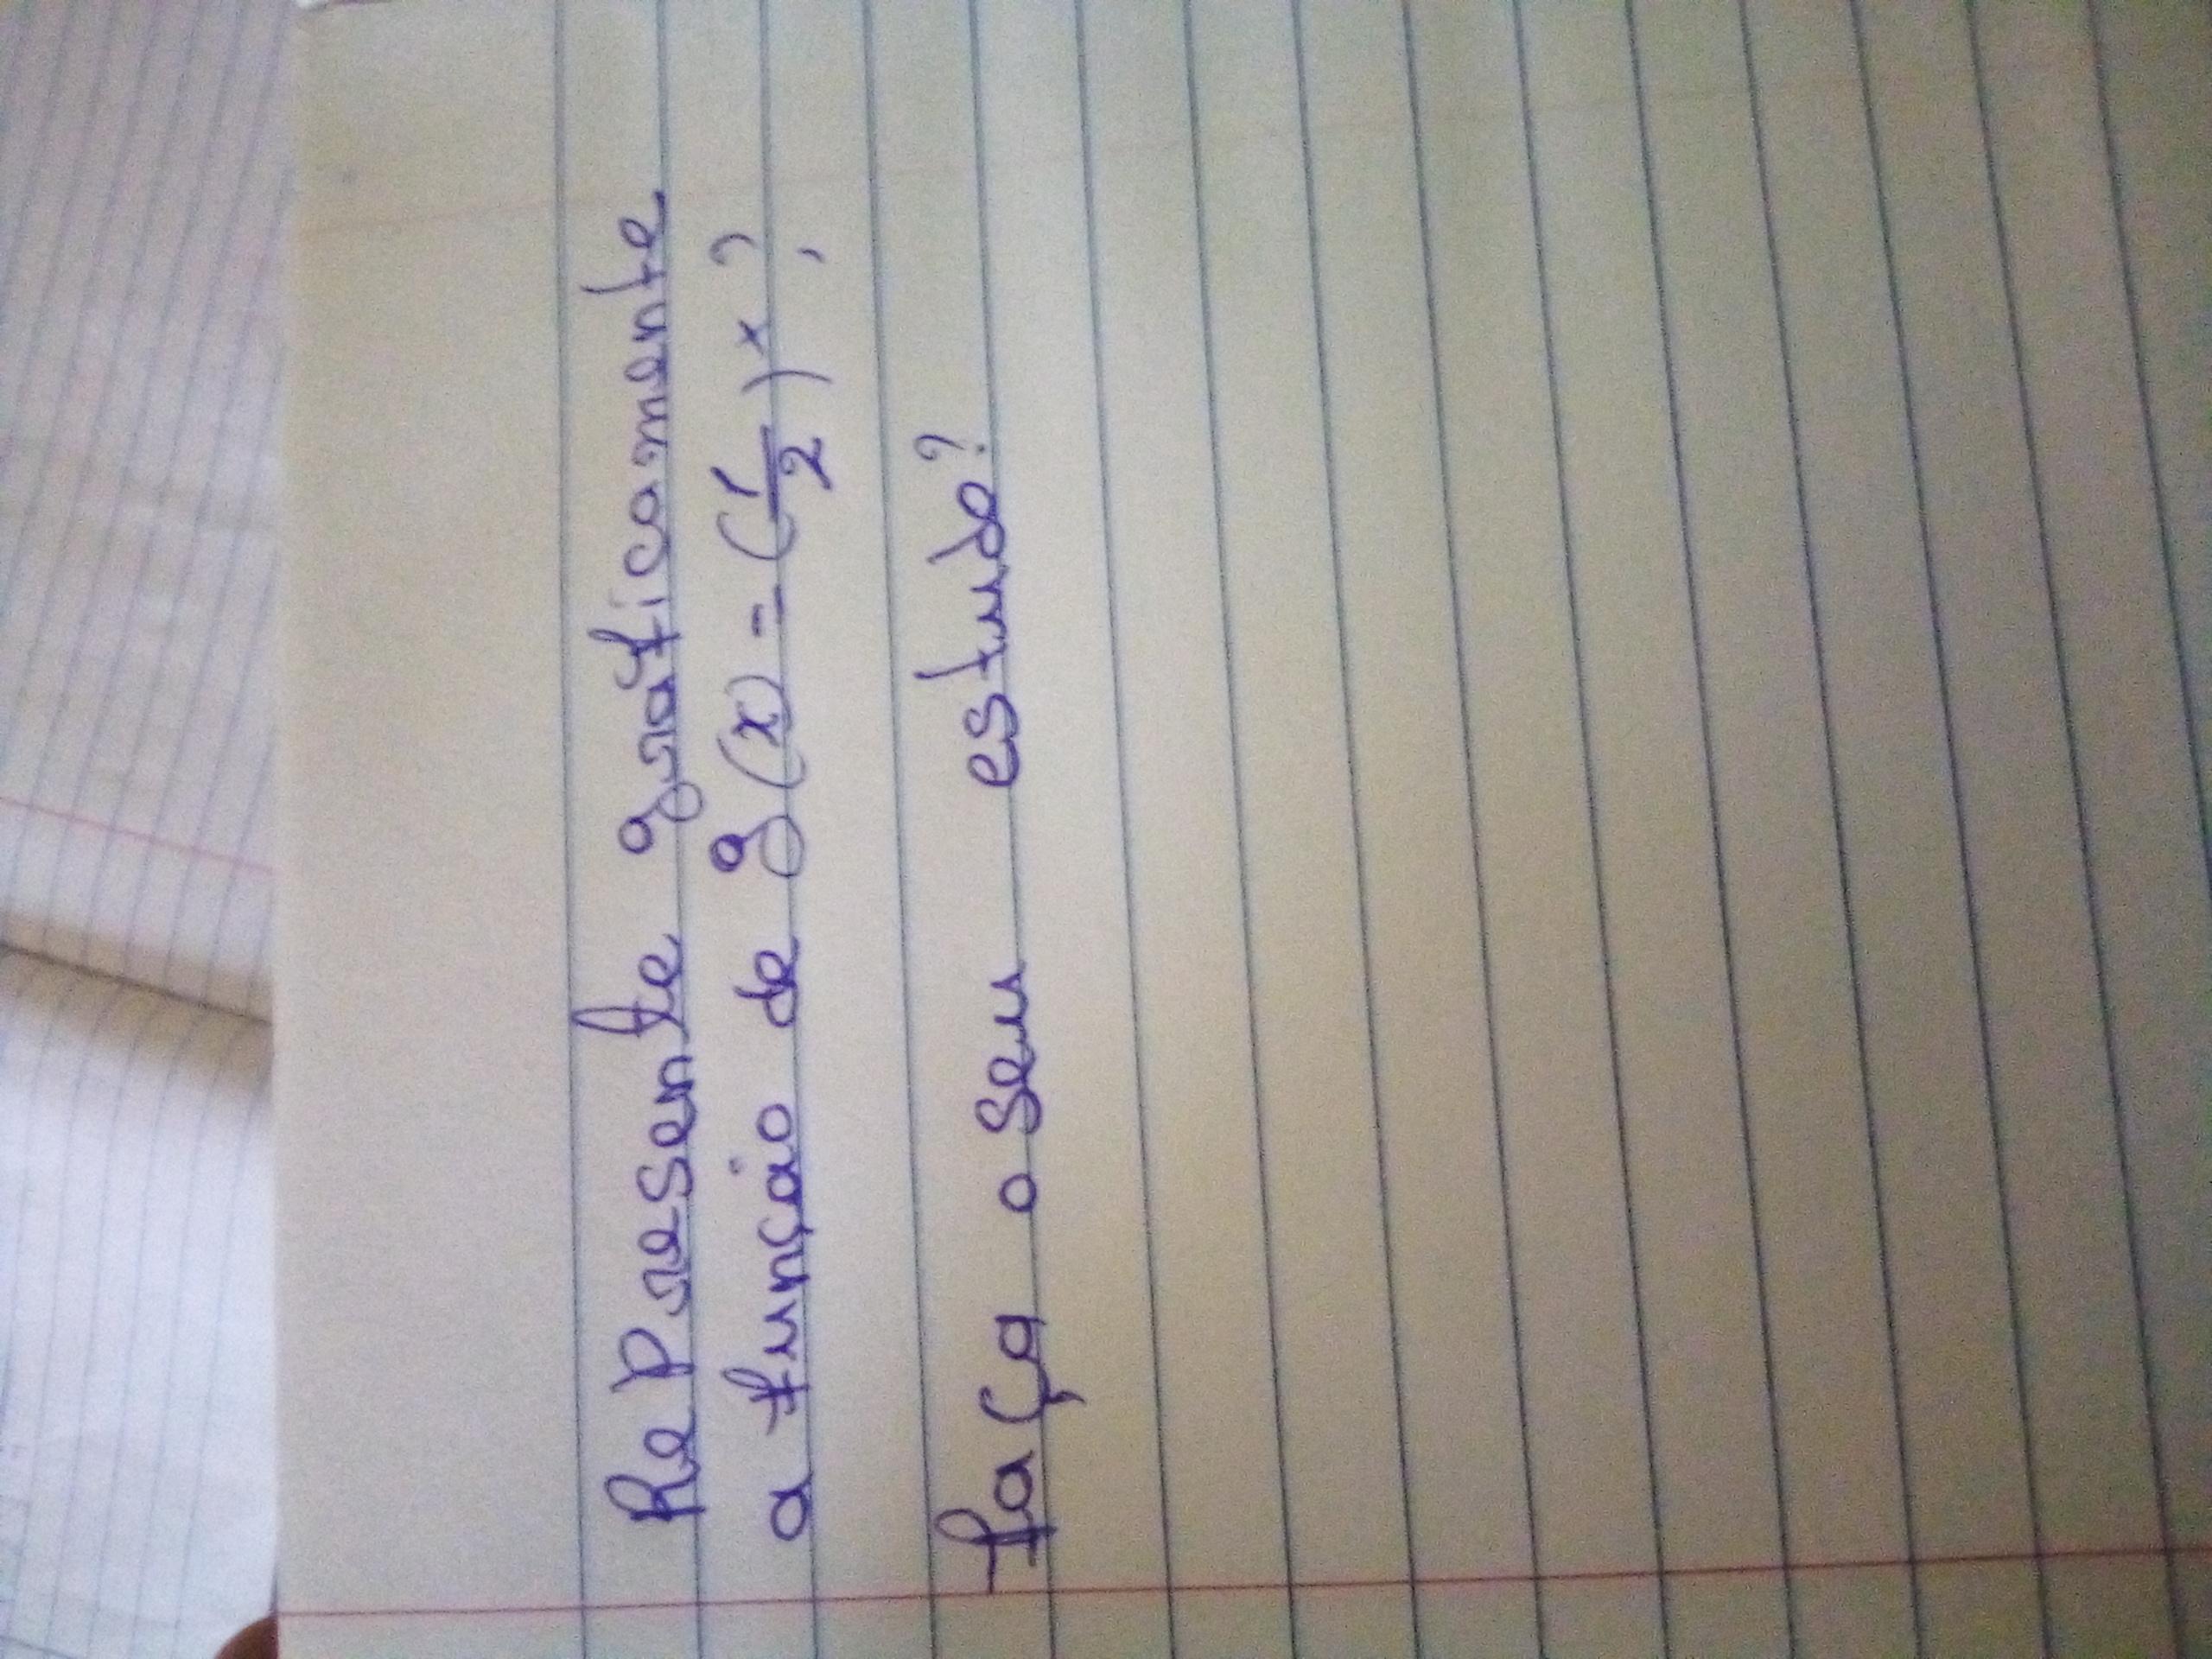 Represente graficamente
a função de g(x) = (1/2)^x?
faça o seu estudo?